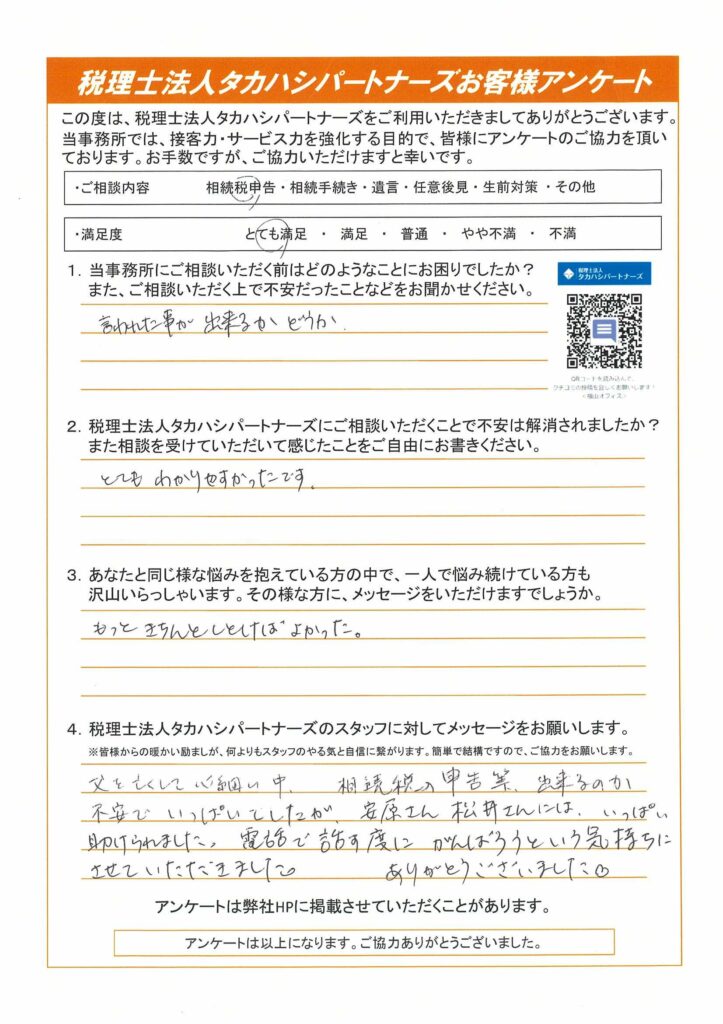 税理士法人タカハシパートナーズお客様アンケート
この度は、税理士法人タカハシパートナーズをご利用いただきましてありがとうございます。
当事務所では、接客力・サービス力を強化する目的で、皆様にアンケートのご協力を頂い
ております。お手数ですが、ご協力いただけますと幸いです。
・ご相談内容 相続税申告・相続手続き・遺言・任意後見・生前対策・その他
・満足度 とても満足 ・ 満足 ・ 普通 ・ やや不満 ・ 不満
1．当事務所にご相談いただく前はどのようなことにお困りでしたか？
また、ご相談いただく上で不安だったことなどをお聞かせください。
税理士法人
タカハシパートナーズ
言われた事が出来るかどうか.
QRコードを読み込んで、
クチコミの投稿を宜しくお願いします！
<福山オフィス>
2．税理士法人タカハシパートナーズにご相談いただくことで不安は解消されましたか？
また相談を受けていただいて感じたことをご自由にお書きください。
とてもわかりやすかったです.
3．あなたと同じ様な悩みを抱えている方の中で、一人で悩み続けている方も
沢山いらっしゃいます。その様な方に、メッセージをいただけますでしょうか。
もっときちんとしとけばよかった。
4．税理士法人タカハシパートナーズのスタッフに対してメッセージをお願いします。
※皆様からの暖かい励ましが、何よりもスタッフのやる気と自信に繋がります。簡単で結構ですので、ご協力をお願いします。
父を亡くして心細い中、相続税の申告等、出来るのか
不安でいっぱいでしたが、安原さん松井さんには、いっぱい
助けられました。電話で話す度にがんばろうという気持ちに
させていただきました。 ありがとうございました。
アンケートは弊社HPに掲載させていただくことがあります。
アンケートは以上になります。ご協力ありがとうございました。